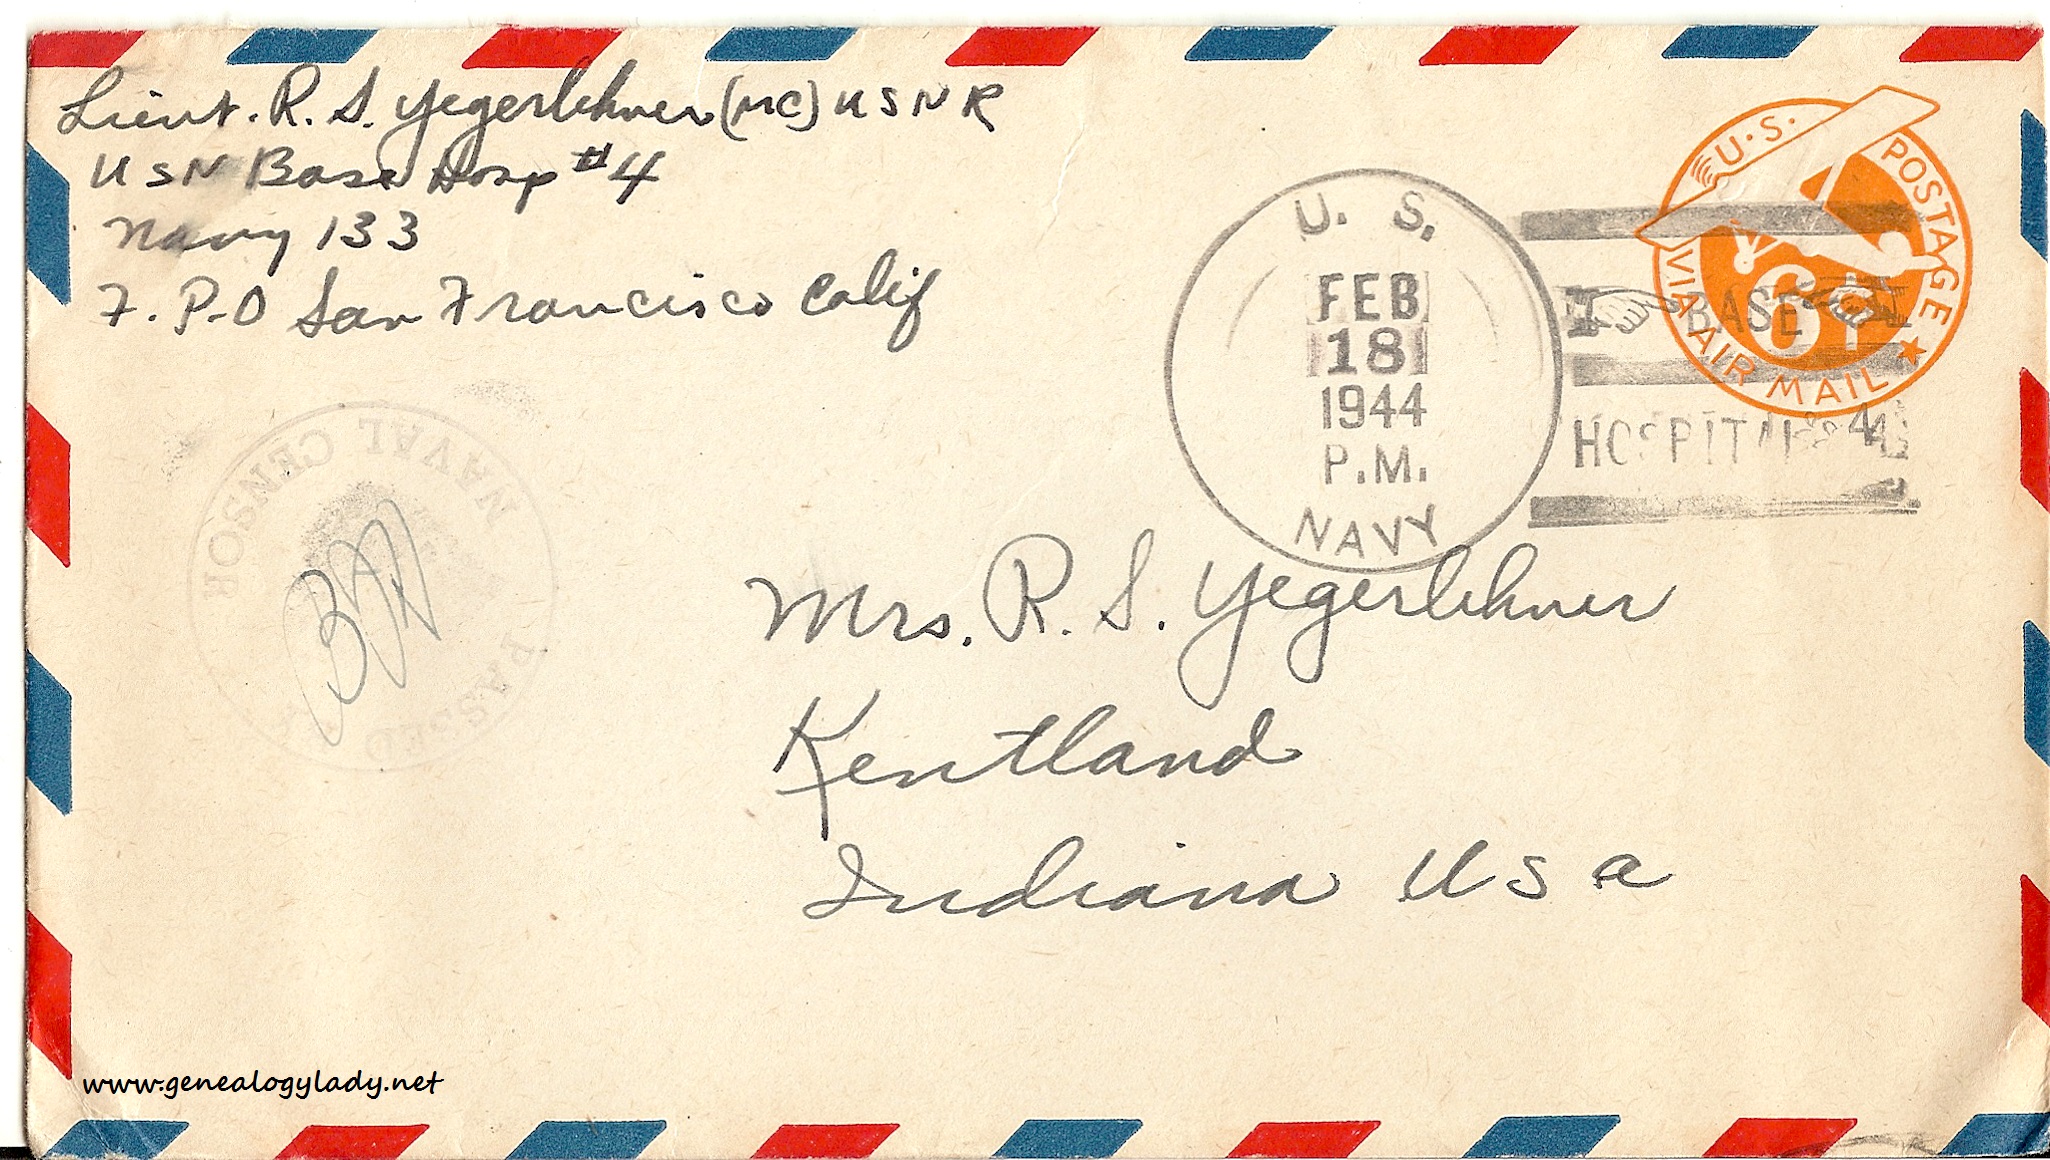 Lieut. R. S. Yegerlehner (MC) USNR
USN Base Hosp #4
Navy 133
F. P.O San Francisco Calif
U.S. POSTAGE
6¢
VIA AIR MAIL
U. S.
FEB
18
1944
P.M.
NAVY
BASE
HOSPITAL 4
PASSED
NAVAL CENSOR
Mrs. R. S. Yegerlehner
Kentland
Indiana U S a
www.genealogylady.net